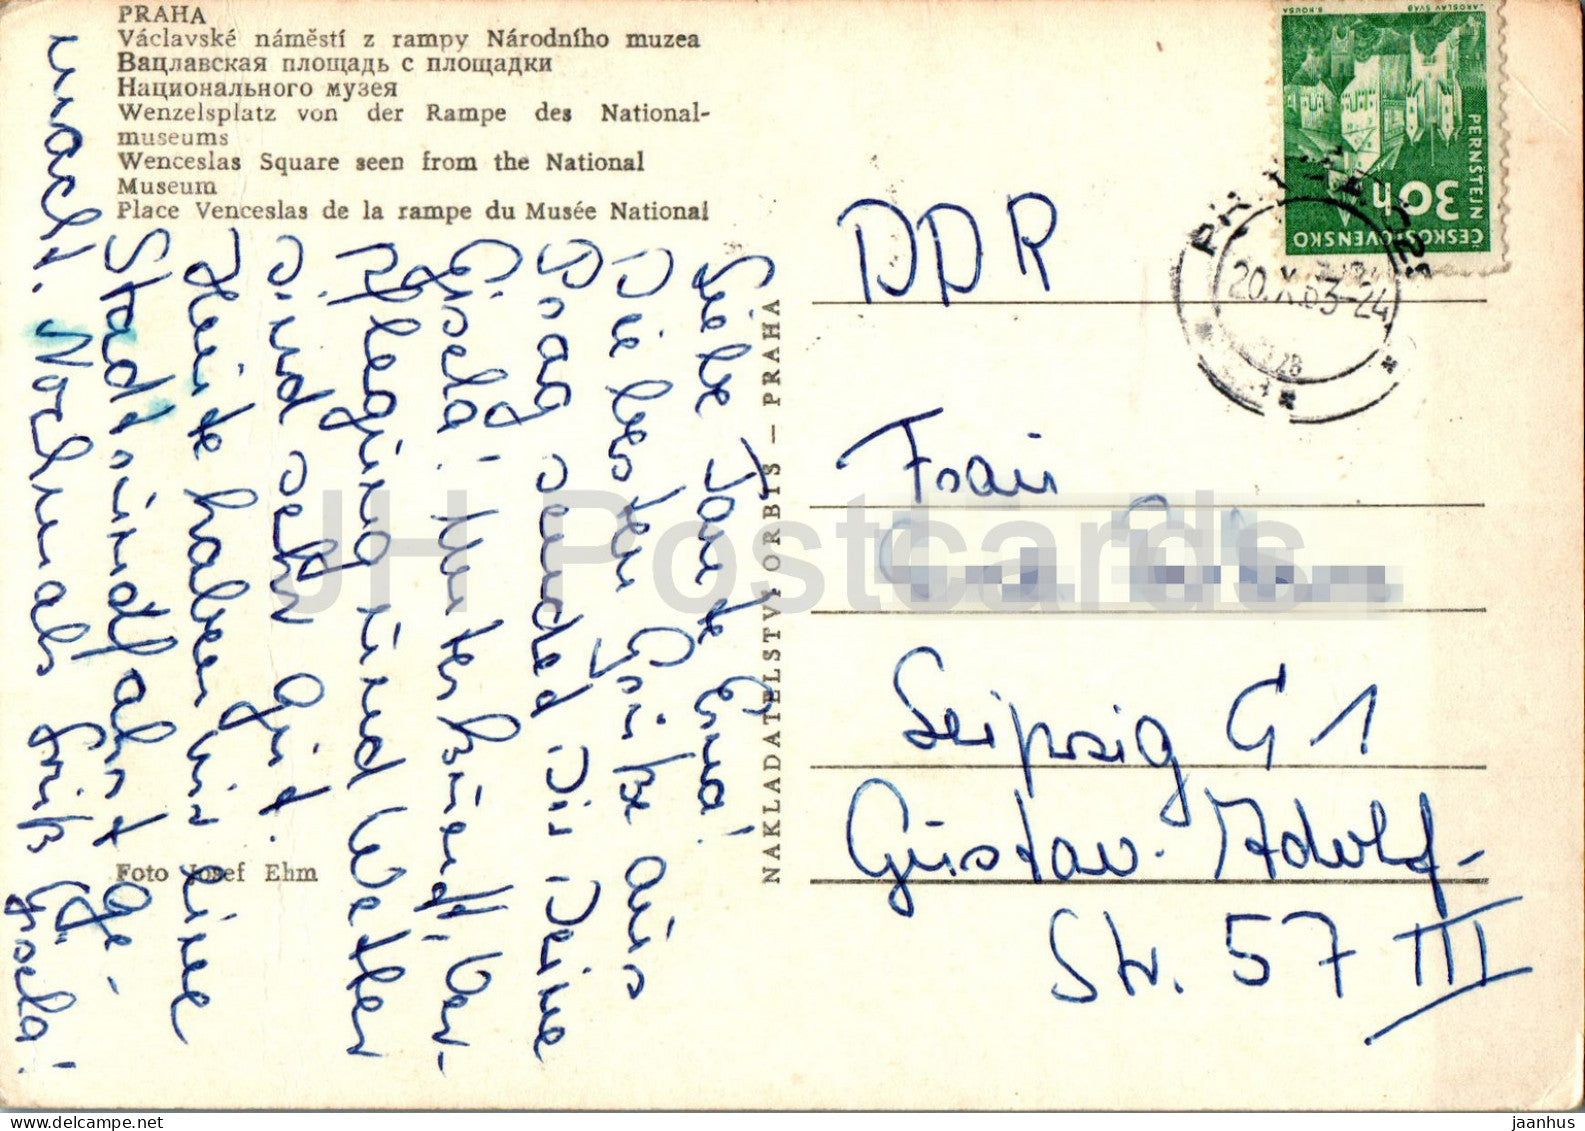 PRAHA
Václavské náměstí z rampy Národního muzea
Вацлавская площадь с площадки
Национального музея
Wenzelsplatz von der Rampe des National-
museums
Wenceslas Square seen from the National
Museum
Place Venceslas de la rampe du Musée National
Liebe Tante Erna!
Die besten Grüße aus
Prag sendet Dir Deine
Gisela! Unterkunft, Ver-
pflegung und Wetter
sind sehr gut.
Heute haben wir eine
Stadtrundfahrt ge-
macht. Nochmals Gruß Gisela!
Foto Josef Ehm
NAKLADATELSTVÍ ORBIS — PRAHA
B. HOUSA
JAROSLAV ŠVÁB
PERNSTEJN
30h
ČESKOSLOVENSKO
PRAHA 025
20.X.63-24
DDR
Frau
Leipzig C 1
Gustav-Adolf-
Str. 57 III
JH Postcards
www.delcampe.net
jaanhus